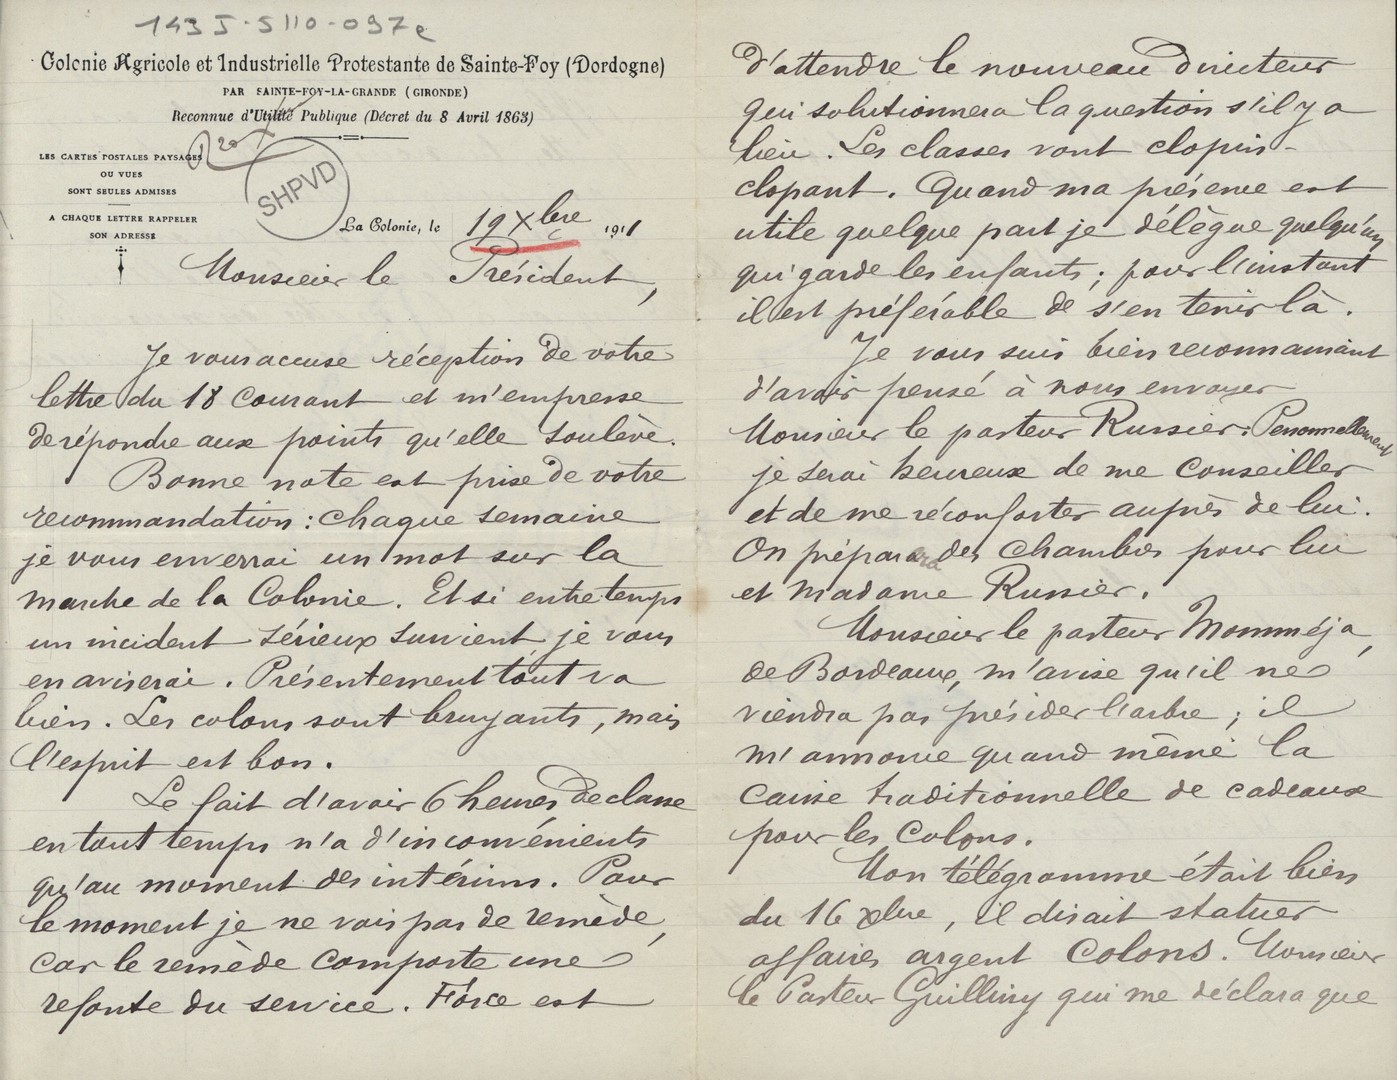 143 J-5110-097e
Colonie Agricole et Industrielle Protestante de Sainte-Foy (Dordogne)
PAR SAINTE-FOY-LA-GRANDE (GIRONDE)
Reconnue d'Utilité Publique (Décret du 8 Avril 1863)
LES CARTES POSTALES PAYSAGES
OU VUES
SONT SEULES ADMISES
A CHAQUE LETTRE RAPPELER
SON ADRESSE
SHPVD
La Colonie, le 19 Xbre 1911
Monsieur le Président,
Je vous accuse réception de votre
lettre du 18 courant et m'empresse
de répondre aux points qu'elle soulève.
Bonne note est prise de votre
recommandation : chaque semaine
je vous enverrai un mot sur la
marche de la Colonie. Et si entre temps
un incident sérieux survient, je vous
en aviserai. Présentement tout va
bien. Les colons sont bruyants, mais
l'esprit est bon.
Le fait d'avoir 6 heures de classe
en tout temps n'a d'inconvénients
qu'au moment des intérims. Pour
le moment je ne vois pas de remède,
car le remède comporte une
refonte du service. Force est
d'attendre le nouveau directeur
qui solutionnera la question s'il y a
lieu. Les classes vont clopin-
clopant. Quand ma présence est
utile quelque part je délègue quelqu'un
qui garde les enfants ; pour l'instant
il est préférable de s'en tenir là.
Je vous suis bien reconnaissant
d'avoir pensé à nous envoyer
Monsieur le pasteur Russier. Personnellement
je serai heureux de me conseiller
et de me réconforter auprès de lui.
On préparera des chambres pour lui
et Madame Russier.
Monsieur le pasteur Momméja,
de Bordeaux, m'avise qu'il ne
viendra pas présider l'arbre ; il
m'annonce quand même la
caisse traditionnelle de cadeaux
pour les Colons.
Mon télégramme était bien
du 16 xbre, il disait statuer
affaires argent Colons. Monsieur
le Pasteur qui me déclara que